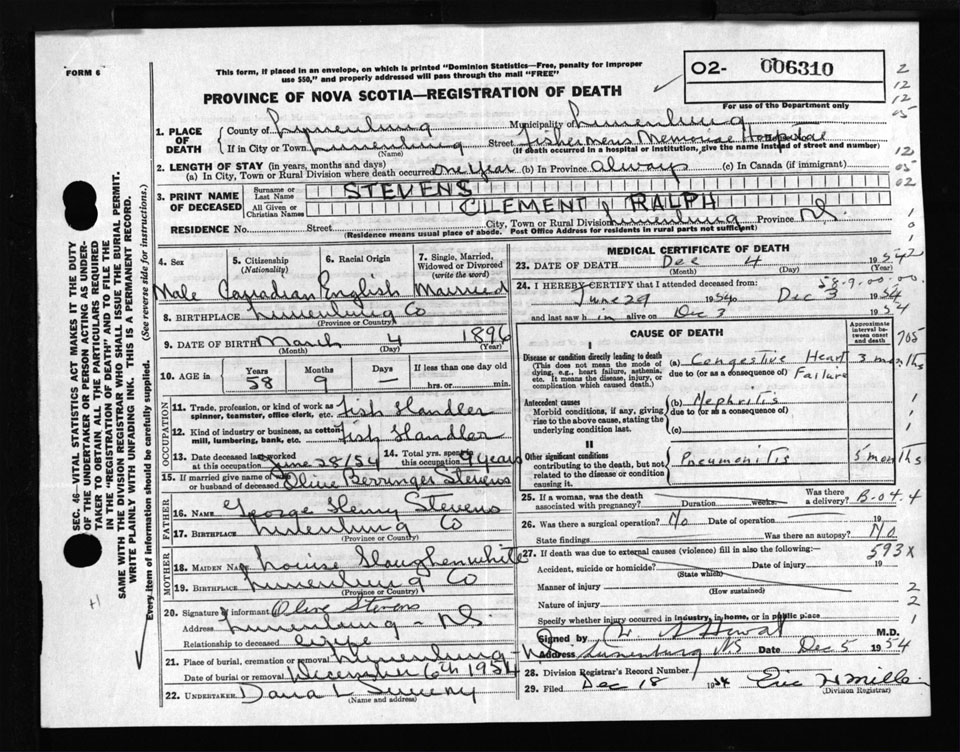 FORM 6
This form, if placed in an envelope, on which is printed "Dominion Statistics—Free, penalty for improper
use $50," and properly addressed will pass through the mail "FREE"
O2- 006310
PROVINCE OF NOVA SCOTIA—REGISTRATION OF DEATH
For use of the Department only
1. PLACE OF DEATH
County of Lunenburg Municipality of Lunenburg
If in City or Town Lunenburg Street Fishermens Memorial Hospital
(Name) (If death occurred in a hospital or institution, give the name instead of street and number)
2. LENGTH OF STAY (in years, months and days)
(a) In City, Town or Rural Division where death occurred one year (b) In Province Always (c) In Canada (if immigrant)
3. PRINT NAME OF DECEASED
Surname or Last Name STEVENS
All Given or Christian Names CLEMENT RALPH
RESIDENCE No. Street City, Town or Rural Division Lunenburg Province N.S.
(Residence means usual place of abode. Post Office Address for residents in rural parts not sufficient)
4. Sex 5. Citizenship (Nationality) 6. Racial Origin 7. Single, Married, Widowed or Divorced (write the word)
Male Canadian English Married
8. BIRTHPLACE Lunenburg Co
(Province or Country)
9. DATE OF BIRTH March 4 1896
(Month) (Day) (Year)
10. AGE in Years Months Days If less than one day old
58 9 — hrs. or min.
OCCUPATION
11. Trade, profession, or kind of work as spinner, teamster, office clerk, etc. Fish Handler
12. Kind of industry or business, as cotton mill, lumbering, bank, etc. Fish Handler
13. Date deceased last worked at this occupation June 28/54 14. Total yrs. spent in this occupation 9 years
15. If married give name of wife or husband of deceased Olive Berringer Stevens
FATHER
16. NAME George Henry Stevens
17. BIRTHPLACE Lunenburg Co
(Province or Country)
MOTHER
18. MAIDEN NAME Louise Slaughenwhite
19. BIRTHPLACE Lunenburg Co
(Province or Country)
20. Signature of informant Olive Stevens
Address Lunenburg - N.S.
Relationship to deceased wife
21. Place of burial, cremation or removal Lunenburg
Date of burial or removal December 6th 1954
22. UNDERTAKER Dana L Sweeny
(Name and address)
MEDICAL CERTIFICATE OF DEATH
23. DATE OF DEATH Dec 4 1954
(Month) (Day) (Year)
58-9-00-00
24. I HEREBY CERTIFY that I attended deceased from:
June 29 1954 to Dec 3 1954
and last saw him alive on Dec 3 1954
CAUSE OF DEATH
Approximate interval between onset and death
I
Disease or condition directly leading to death
(This does not mean the mode of dying, e.g., heart failure, asthenia, etc. It means the disease, injury, or complication which caused death.)
(a) Congestive Heart Failure 3 months
due to (or as a consequence of)
Antecedent causes
Morbid conditions, if any, giving rise to the above cause, stating the underlying condition last.
(b) Nephritis
due to (or as a consequence of)
(c)
II
Other significant conditions
contributing to the death, but not related to the disease or condition causing it.
Pneumonitis 5 months
25. If a woman, was the death associated with pregnancy? Duration weeks. Was there a delivery? B-04.4
26. Was there a surgical operation? No Date of operation 19
State findings Was there an autopsy? No
593x
27. If death was due to external causes (violence) fill in also the following:—
Accident, suicide or homicide? Date of injury 19
(State which)
Manner of injury
(How sustained)
Nature of injury
Specify whether injury occurred in industry, in home, or in public place
Signed by M.D.
Address Lunenburg NS Date Dec 5 1954
28. Division Registrar's Record Number
29. Filed Dec 18 1954 Eric H Mills
(Division Registrar)
SEC. 46—VITAL STATISTICS ACT MAKES IT THE DUTY
OF THE UNDERTAKER OR PERSON ACTING AS UNDERTAKER
TO OBTAIN ALL THE PARTICULARS REQUIRED
IN THE "REGISTRATION OF DEATH" AND TO FILE THE
SAME WITH THE DIVISION REGISTRAR WHO SHALL ISSUE THE BURIAL PERMIT.
WRITE PLAINLY WITH UNFADING INK. THIS IS A PERMANENT RECORD.
Every item of information should be carefully supplied. (See reverse side for instructions.)
2
12
12
05
12
05
02
1
0
1
2
705
1
1
2
2
1